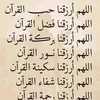 اللهم أرزقنا حب القرآن
اللهم أرزقنا فضل القرآن
اللهم أرزقنا بركة القرآن
اللهم أرزقنا نور القرآن
اللهم أرزقنا سكينة القرآن
اللهم أرزقنا شفاء القرآن
اللهم أرزقنا رحمة القرآن